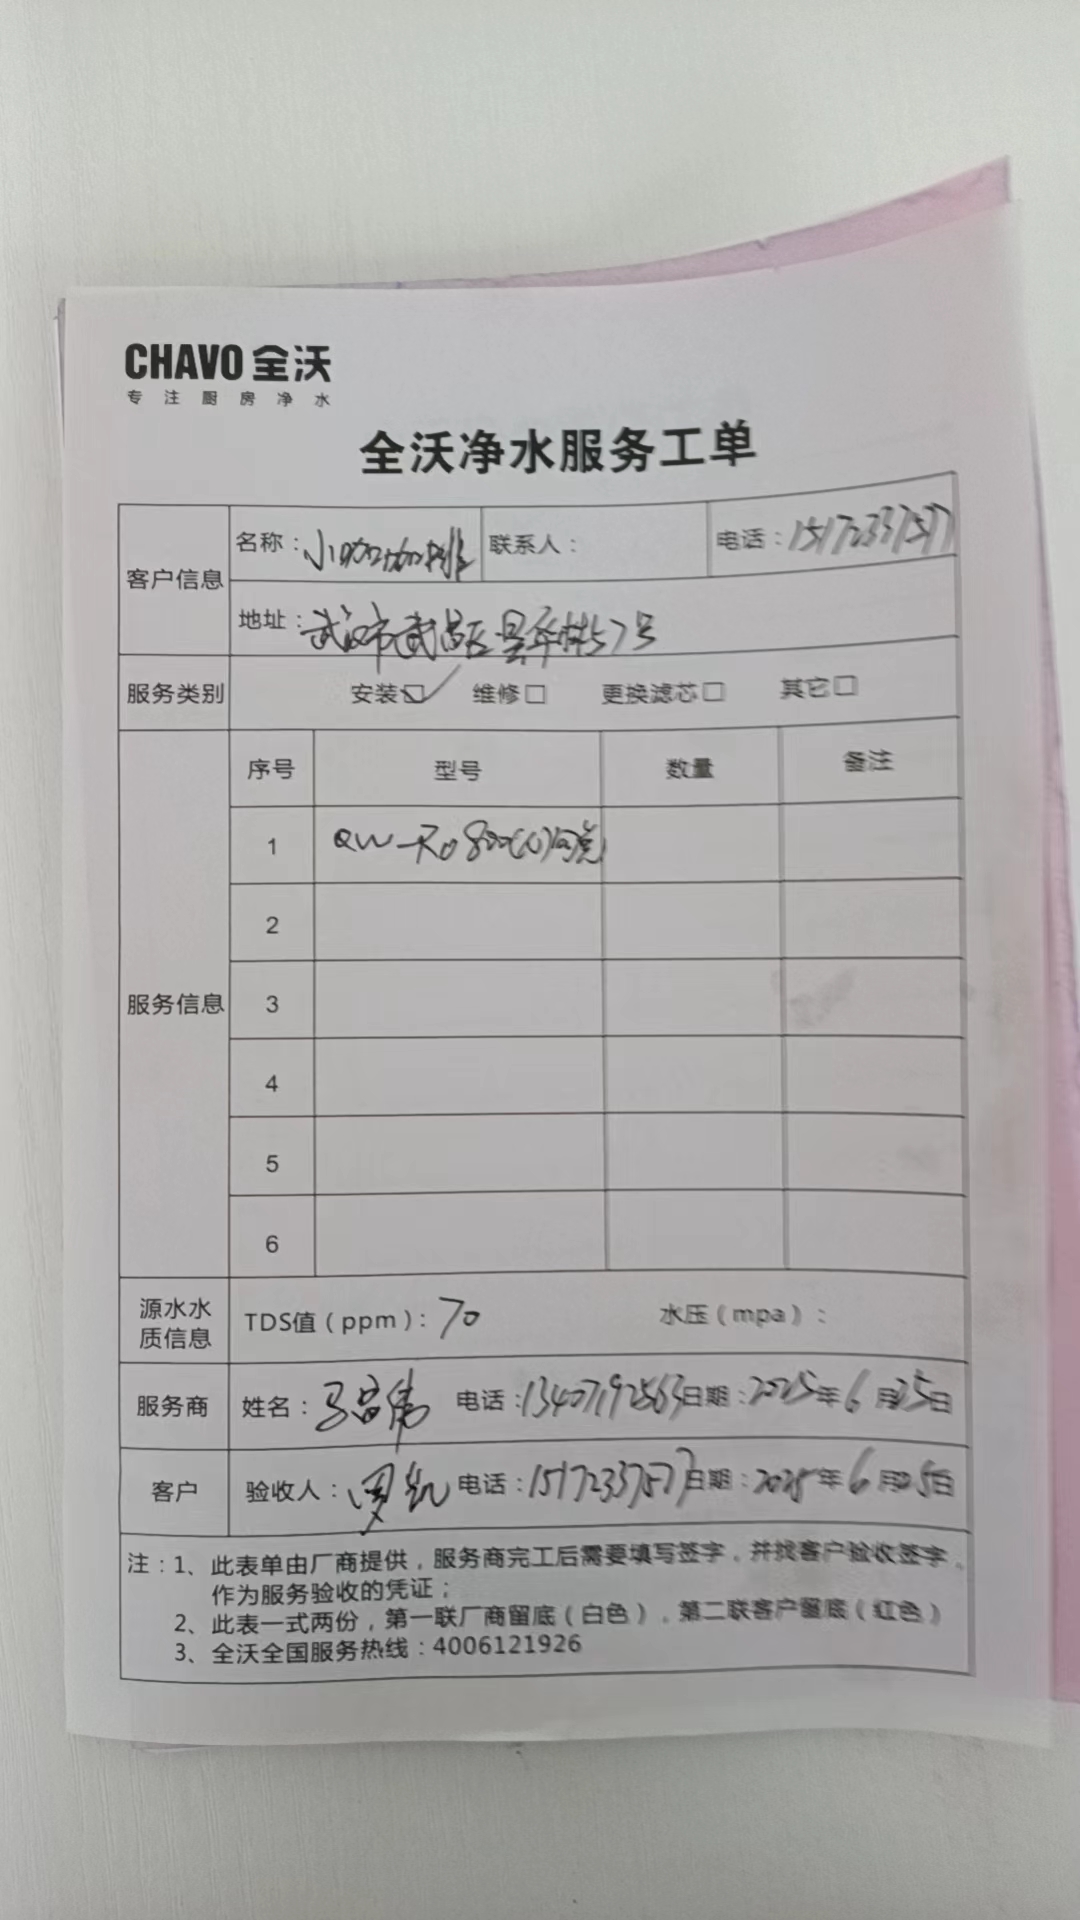 CHAVO 全沃
专注厨房净水
全沃净水服务工单
客户信息
名称：小咖咖啡 联系人： 电话：15172337577
地址：武汉市武昌区昙华林57号
服务类别 安装☑ 维修□ 更换滤芯□ 其它□
服务信息
序号 型号 数量 备注
1 QW-R0800(C)
2
3
4
5
6
源水水质信息 TDS值（ppm）：70 水压（mpa）：
服务商 姓名： 电话：13407192563 日期：2025年6月25日
客户 验收人： 电话：15172337577 日期：2025年6月25日
注：1、此表单由厂商提供，服务商完工后需要填写签字，并找客户验收签字，
作为服务验收的凭证；
2、此表一式两份，第一联厂商留底（白色），第二联客户留底（红色）
3、全沃全国服务热线：4006121926